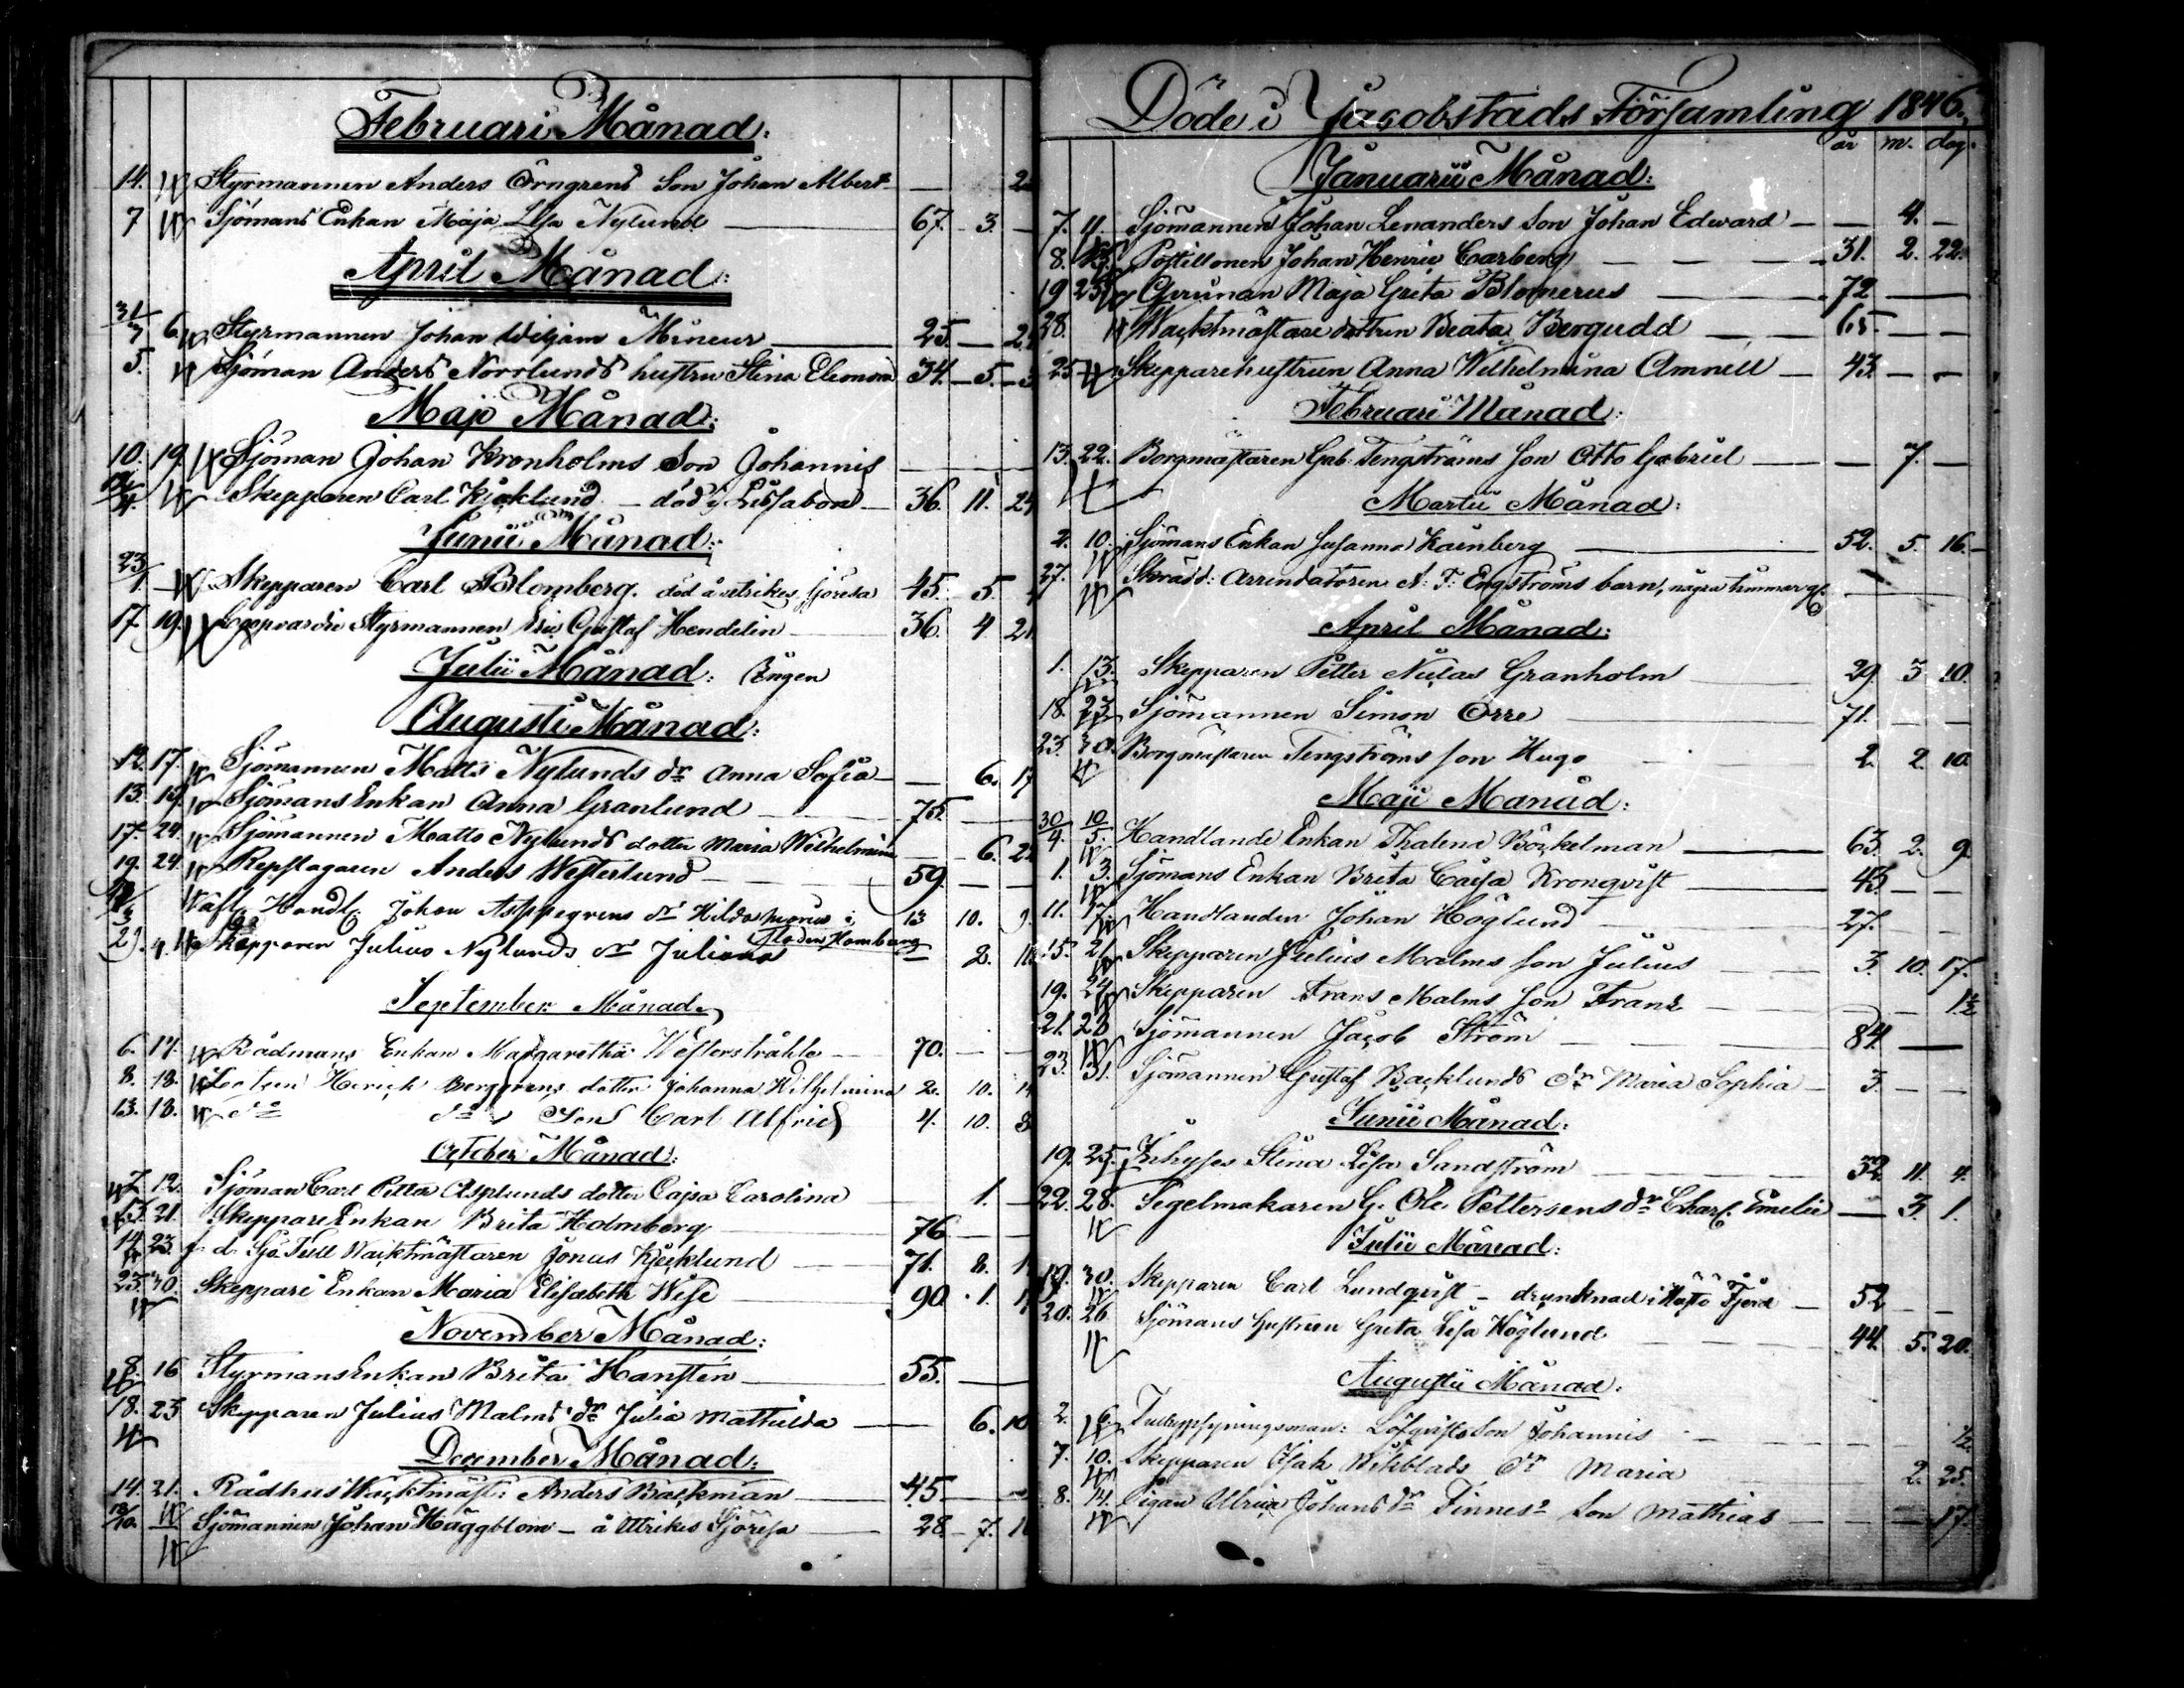 Februari Månad:
14. Styrmannen Anders Örngrens Son Johan Albert — 2
7 Sjömans Enkan Maja Lisa Nylund — 67. 3. —
April Månad:
31/3 6. Styrmannen Johan Wiljam Mineur — 25. — 2
5. Sjöman Anders Norrlunds hustru Stina Eleonora 34. 5. 3
Maji Månad:
10. 19. Sjöman Johan Kronholms Son Johannis — — —
Skepparen Carl Kjæklund — död i Lissabon — 36. 11. 24
Junii Månad:
23/1. — Skepparen Carl Blomberg. död å utrikes sjöresa 45. 5.
17. 19. Coopvardie Styrmannen Eric Gustaf Hendelin — 36. 4 21
Julii Månad: Ingen
Augusti Månad:
12. 17. Sjömannen Matts Nylunds dr Anna Sofia — 6. 17
13. 19. Sjömans Enkan Anna Granlund — 75. — —
17. 24. Sjömannen Matts Nylunds dotter Maria Wilhelmina — 6. 22
19. 24. Repslagaren Anders Westerlund — 59. — —
Handl. Johan Aspegrens dr Hilda 13 10. 9.
staden Hamburg
29. 4. Skepparen Julius Nylunds dr Juliana — 2. 16
September Månad
6. 14. Rådmans Enkan Margaretha Westerstråhle — 70. — —
8. 18. Lootsen Henrich Berggrens dotter Johanna Wilhelmina 2. 10. 14
13. 18. do do Son Carl Alfrid 4. 10. 8
October Månad:
7. 12. Sjöman Carl Petter Asplunds dotter Cajsa Carolina — 1. —
13. 21. Skeppare Enkan Brita Holmberg — 76 — —
14. 23. f. d. Sjö Tull Wacktmästaren Jonas Kjæcklund — 71. 8. 1
23. 30. Skeppare Enkan Maria Elisabeth Wise — 90. 1. 1
November Månad:
8. 16 Styrmans Enkan Brita Hansten — 55. —
18. 23 Skepparen Julius Malms dr Julia Mathilda — 6. 10
December Månad:
14. 21. Rådhus Wacktmäst: Anders Backman — 45. — —
13/10. Sjömannen Johan Häggblom — å Utrikes Sjöresa — 28. 7. 1
Döde i Jacobstads Församling 1846.
år m. dag.
Januarii Månad:
7. 11. Sjömannen Johan Lenanders Son Johan Edward — — 4. —
8. Postillonen Johan Henric Carberg — 31. 2. 22.
19 25. Gummman Maja Greta Blomerus — 72 — —
28. Wacktmästare dottren Beata Bergudd — 65. — —
25 Skepparehustrun Anna Wilhelmina Amnell — 43. — —
Februari Månad:
13. 22. Borgmästaren Gab. Tengströms son Otto Gabriel — — 7. —
Martii Månad:
2. 10. Sjömans Enkan Susanna Kainberg — 52. 5. 16.
27. Arrendatoren N: F: Engströms barn, några timmar g. — — —
April Månad:
1. 13. Skepparen Petter Niclas Granholm — 29. 3 10.
18. 23 Sjömannen Simon Orre — 71. — —
23. 30. Borgmästaren Tengströms son Hugo 2. 2. 10
Maji Månad:
30/4. 10/5. Handlande Enkan Thalena Böckelman — 63. 2. 9.
1. 3. Sjömans Enkan Brita Caisa Kronqvist — 43 — —
11. 17. Handlanden Johan Höglund — 27. — —
15. 21. Skepparen Julius Malms son Julius — 3. 10. 17.
19. 24. Skepparen Frans Malms son Frans — — — 1½
21. 28 Sjömannen Jacob Ström — 84. —
23. 31. Sjömannen Gustaf Backlunds dr Maria Sophia — 3. — —
Junii Månad:
19. 25. Inhyses Stina Lisa Sandström — 32. 11. 4.
22. 28. Segelmakaren G. Ole Pettersens dr Charl. Emelie — 3. 1.
Julii Månad:
19. 30. Skepparen Carl Lundqvist — drunknad i Fjerd — 52 — —
20. 26 Sjömans hustrun Greta Lisa Höglund — 44. 5. 20.
Augusti Månad:
2. 6. Löfqvists Son Johannis — — — ½
7. 10. Skepparen Isak Wikblads dr Maria 2. 25.
8. 14. Pigan Ulrica Johans dr Finnes Son Mathias — — — 17.